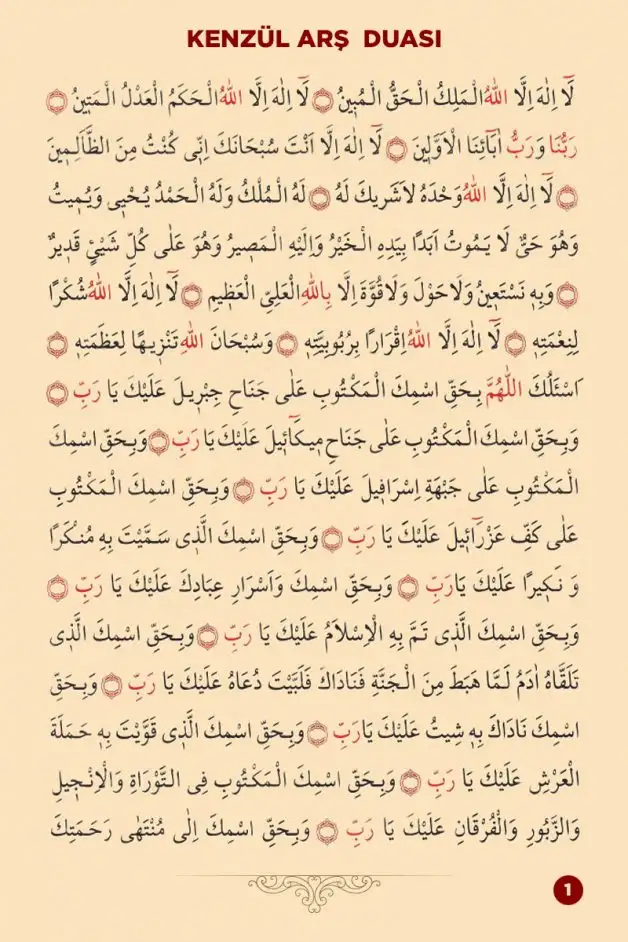 KENZÜL ARŞ DUASI
لَٓا اِلٰهَ اِلَّا اللّٰهُ الْمَلِكُ الْحَقُّ الْمُبِينُ ۞ لَٓا اِلٰهَ اِلَّا اللّٰهُ الْحَكَمُ الْعَدْلُ الْمَتِينُ ۞
رَبُّنَا وَرَبُّ اٰبَٓائِنَا الْاَوَّلِينَ ۞ لَٓا اِلٰهَ اِلَّا اَنْتَ سُبْحَانَكَ اِنِّى كُنْتُ مِنَ الظَّالِمِينَ
۞ لَٓا اِلٰهَ اِلَّا اللّٰهُ وَحْدَهُ لَاشَرِيكَ لَهُ ۞ لَهُ الْمُلْكُ وَلَهُ الْحَمْدُ يُحْيِى وَيُمِيتُ
وَهُوَ حَىٌّ لَا يَمُوتُ اَبَدًا بِيَدِهِ الْخَيْرُ وَاِلَيْهِ الْمَصِيرُ وَهُوَ عَلٰى كُلِّ شَيْئٍ قَدِيرٌ
۞ وَبِهِ نَسْتَعِينُ وَلَاحَوْلَ وَلَاقُوَّةَ اِلَّا بِاللّٰهِ الْعَلِىِّ الْعَظِيمِ ۞ لَٓا اِلٰهَ اِلَّا اللّٰهُ شُكْرًا
لِنِعْمَتِهِ ۞ لَٓا اِلٰهَ اِلَّا اللّٰهُ اِقْرَارًا بِرُبُوبِيَّتِهِ ۞ وَسُبْحَانَ اللّٰهِ تَنْزِيهًا لِعَظَمَتِهِ ۞
اَسْئَلُكَ اللّٰهُمَّ بِحَقِّ اسْمِكَ الْمَكْتُوبِ عَلٰى جَنَاحِ جِبْرِيلَ عَلَيْكَ يَا رَبِّ ۞
وَبِحَقِّ اسْمِكَ الْمَكْتُوبِ عَلٰى جَنَاحِ مِيكَٓائِيلَ عَلَيْكَ يَا رَبِّ ۞ وَبِحَقِّ اسْمِكَ
الْمَكْتُوبِ عَلٰى جَبْهَةِ اِسْرَافِيلَ عَلَيْكَ يَا رَبِّ ۞ وَبِحَقِّ اسْمِكَ الْمَكْتُوبِ
عَلٰى كَفِّ عَزْرَٓائِيلَ عَلَيْكَ يَا رَبِّ ۞ وَبِحَقِّ اسْمِكَ الَّذِى سَمَّيْتَ بِهِ مُنْكَرًا
وَ نَكِيرًا عَلَيْكَ يَارَبِّ ۞ وَبِحَقِّ اسْمِكَ وَاَسْرَارِ عِبَادِكَ عَلَيْكَ يَا رَبِّ ۞
وَبِحَقِّ اسْمِكَ الَّذِى تَمَّ بِهِ الْاِسْلَامُ عَلَيْكَ يَا رَبِّ ۞ وَبِحَقِّ اسْمِكَ الَّذِى
تَلَقَّاهُ اٰدَمُ لَمَّا هَبَطَ مِنَ الْجَنَّةِ فَنَادَاكَ فَلَبَّيْتَ دُعَاهُ عَلَيْكَ يَا رَبِّ ۞ وَبِحَقِّ
اسْمِكَ نَادَاكَ بِهِ شِيتُ عَلَيْكَ يَارَبِّ ۞ وَبِحَقِّ اسْمِكَ الَّذِى قَوَّيْتَ بِهِ حَمَلَةَ
الْعَرْشِ عَلَيْكَ يَا رَبِّ ۞ وَبِحَقِّ اسْمِكَ الْمَكْتُوبِ فِى التَّوْرَاةِ وَالْاِنْجِيلِ
وَالزَّبُورِ وَالْفُرْقَانِ عَلَيْكَ يَا رَبِّ ۞ وَبِحَقِّ اسْمِكَ اِلٰى مُنْتَهٰى رَحَمَتِكَ
1